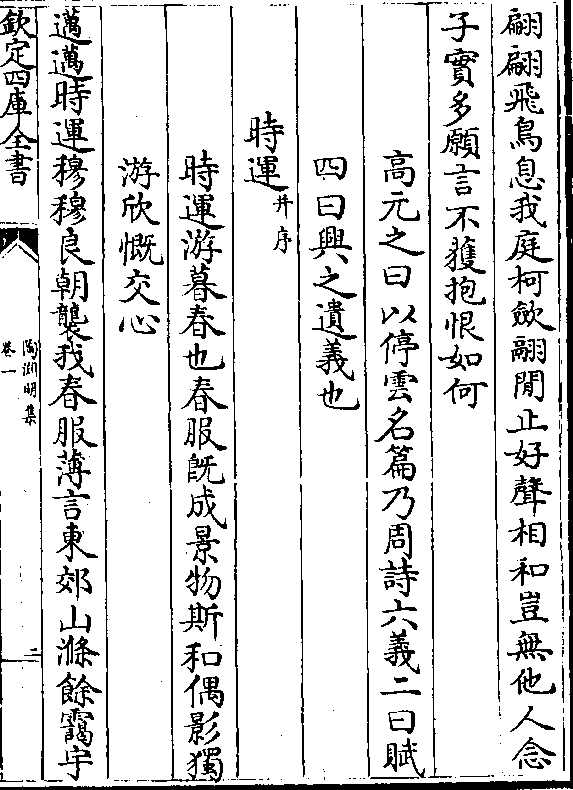 翩翩飛鳥息我庭柯歛翮閒止好聲相和豈無他人念
子實多願言不獲抱恨如何
高元之曰以停雲名篇乃周詩六義二曰賦
四曰興之遺義也
時運并序
時運游暮春也春服既成景物斯和偶影獨
游欣慨交心
邁邁時運穆穆良朝襲我春服薄言東郊山滌餘靄宇
欽定四庫全書
陶淵明集
卷一
二